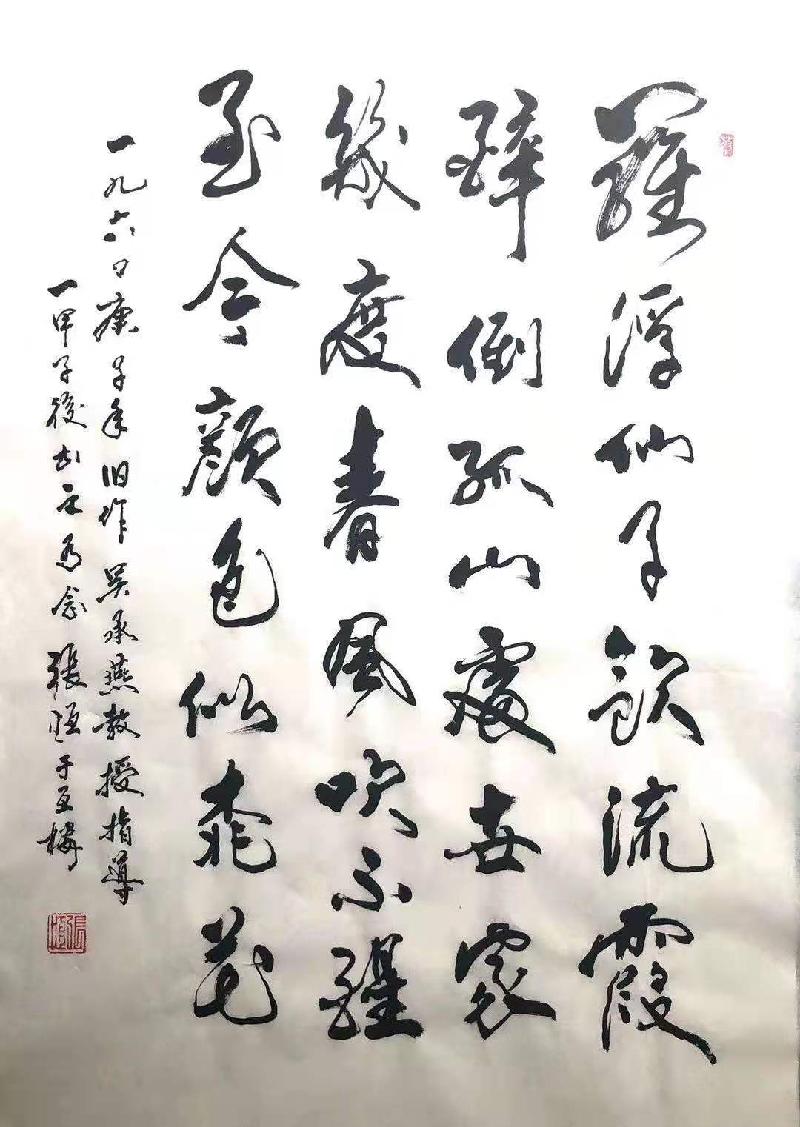 羅浮仙子飲流霞
醉倒孤山處士家
幾度春風吹不醒
至今顏色似桃花
一九六〇庚子年旧作吴承燕教授指導
一甲子後書之为念張恒于
張恒